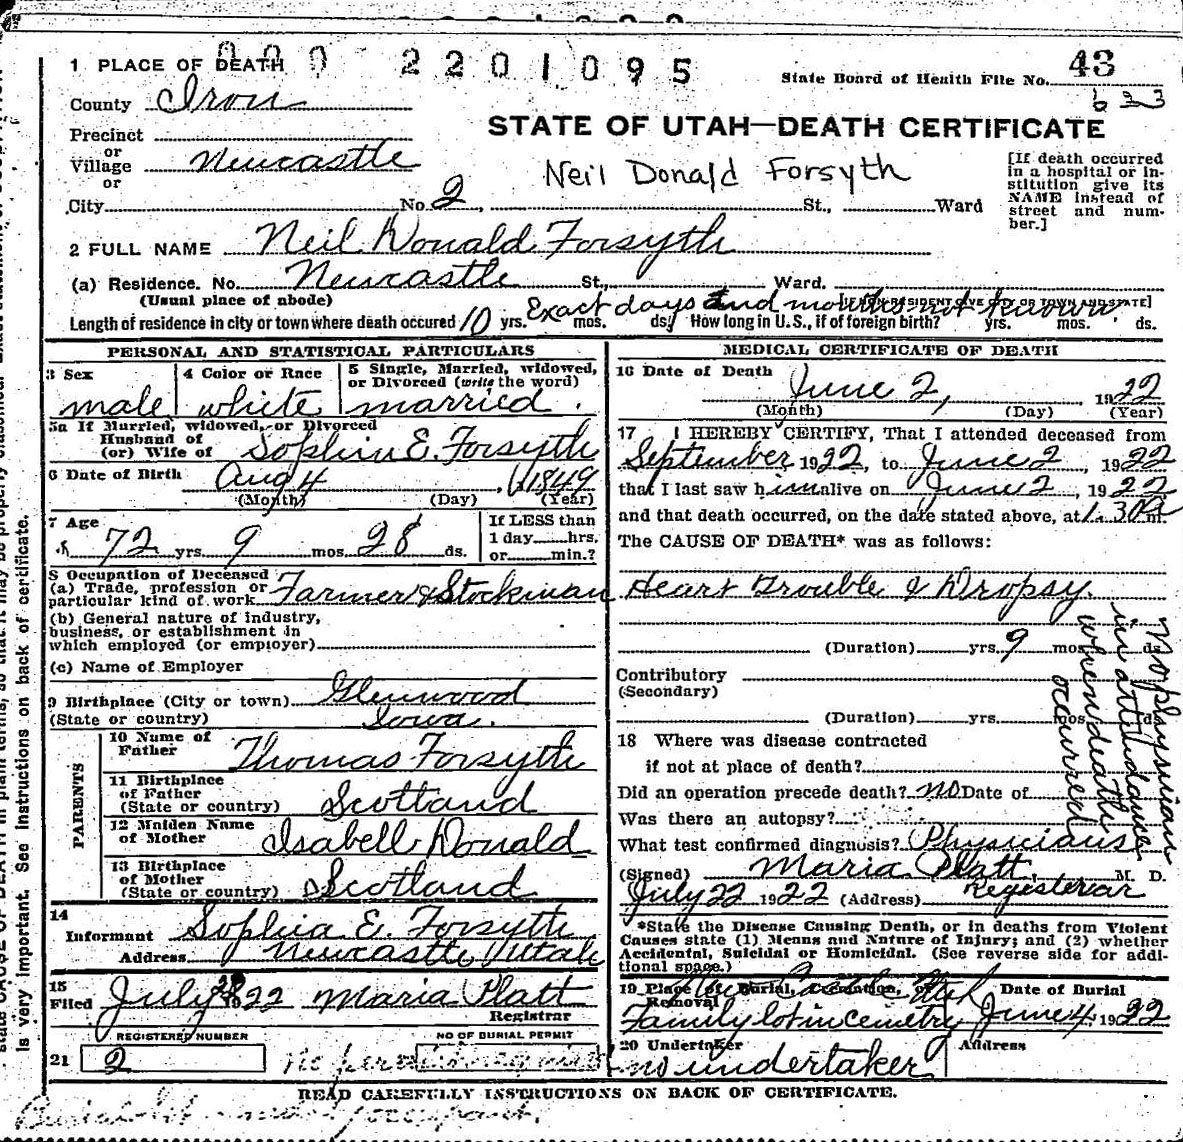 000 2201095
1 PLACE OF DEATH
State Board of Health File No. 43
633
County Iron
STATE OF UTAH—DEATH CERTIFICATE
Precinct
or
Village Newcastle
or
Neil Donald Forsyth
[If death occurred
in a hospital or in-
stitution give its
NAME instead of
street and num-
ber.]
City No. 2, St., Ward
2 FULL NAME Neil Donald Forsyth
(a) Residence. No. Newcastle St., Ward.
(Usual place of abode)
Exact days and months not known
Length of residence in city or town where death occured 10 yrs. mos. ds. How long in U.S., if of foreign birth? yrs. mos. ds.
PERSONAL AND STATISTICAL PARTICULARS
3 Sex
male
4 Color or Race
white
5 Single, Married, widowed,
or Divorced (write the word)
married.
5a If Married, widowed, or Divorced
Husband of
(or) Wife of Sophia E. Forsyth
6 Date of Birth Aug 4, 1849
(Month) (Day) (Year)
7 Age
72 yrs. 9 mos. 28 ds.
If LESS than
1 day hrs.
or min.?
8 Occupation of Deceased
(a) Trade, profession or
particular kind of work Farmer & Stockman
(b) General nature of industry,
business, or establishment in
which employed (or employer)
(c) Name of Employer
9 Birthplace (City or town) Glenwood
(State or country) Iowa.
PARENTS
10 Name of
Father Thomas Forsyth
11 Birthplace
of Father
(State or country) Scotland
12 Maiden Name
of Mother Isabell Donald
13 Birthplace
of Mother
(State or country) Scotland
14
Informant Sophia E. Forsyth
Address Newcastle Utah
15
Filed July 22 Maria Platt
Registrar
REGISTERED NUMBER
NO OF BURIAL PERMIT
21 2
MEDICAL CERTIFICATE OF DEATH
16 Date of Death June 2, 1922
(Month) (Day) (Year)
17 I HEREBY CERTIFY, That I attended deceased from
September 1922, to June 2, 1922
that I last saw him alive on June 2, 1922
and that death occurred, on the date stated above, at 1.30 a m.
The CAUSE OF DEATH* was as follows:
Heart Trouble & Dropsy.
(Duration) yrs. 9 mos. ds.
Contributory
(Secondary)
(Duration) yrs. mos. ds.
No physician
in attendance
when death
occurred
18 Where was disease contracted
if not at place of death?
Did an operation precede death? no Date of
Was there an autopsy?
What test confirmed diagnosis? Physicians
(Signed) Maria Platt, M. D.
July 22 1922 (Address) Registerar
*State the Disease Causing Death, or in deaths from Violent
Causes state (1) Means and Nature of Injury; and (2) whether
Accidental, Suicidal or Homicidal. (See reverse side for addi-
tional space.)
19 Place of Burial, Cremation, or
Removal
New Castle Utah
Family lot in cemetry
Date of Burial
June 4, 1922
20 Undertaker
no undertaker
Address
READ CAREFULLY INSTRUCTIONS ON BACK OF CERTIFICATE.
is very important. See instructions on back of certificate.